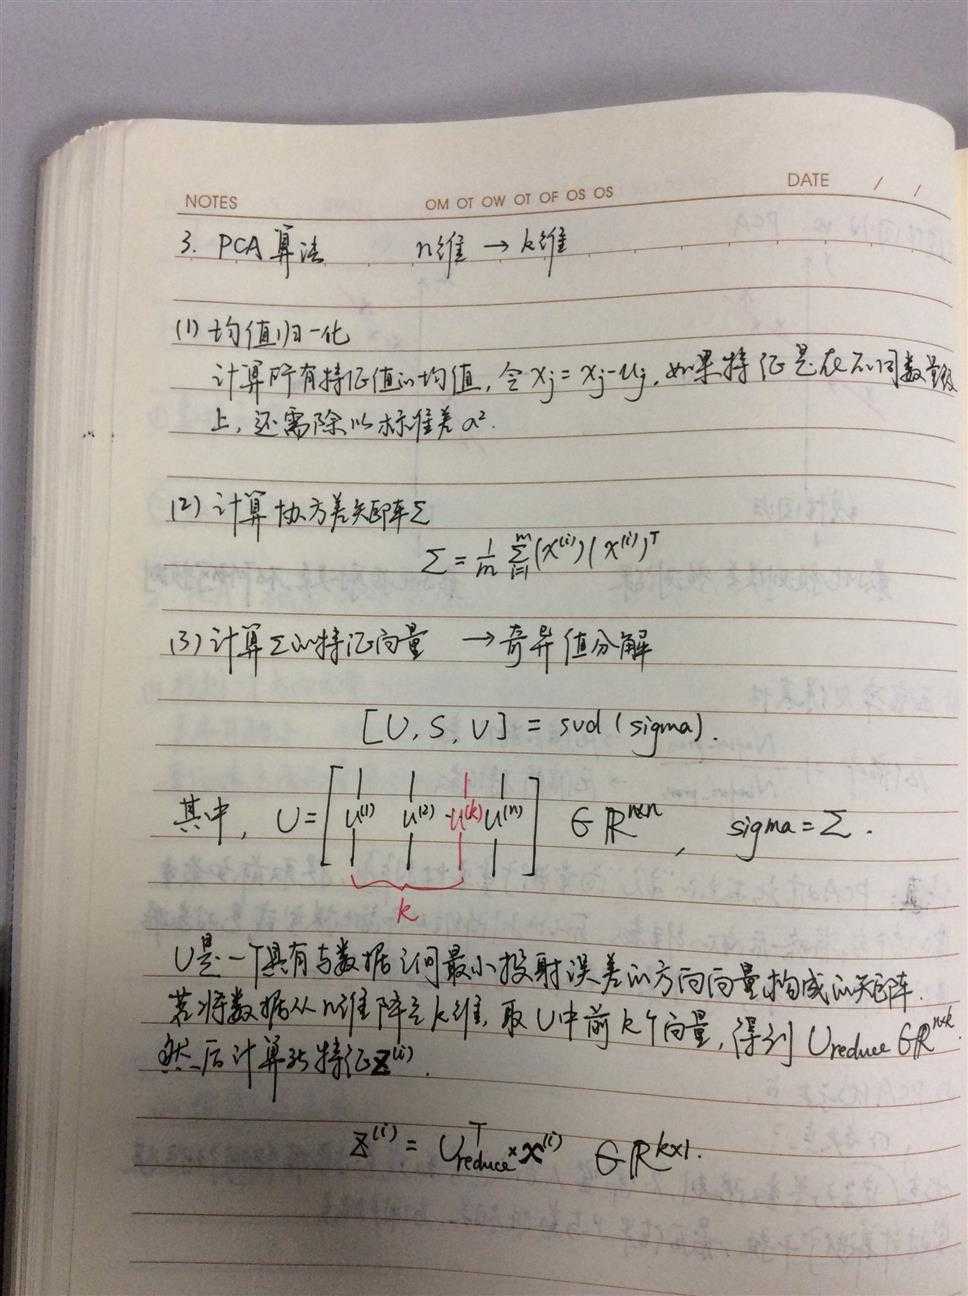 NOTES OM OT OW OT OF OS OS DATE / /
3. PCA算法 n维 → k维
(1) 均值归一化
计算所有特征值的均值,令 xj = xj-uj,如果特征是在不同数量级
上,还需除以标准差 σ².
(2) 计算协方差矩阵Σ
Σ = 1/m Σ(i=1 to m) (x⁽ⁱ⁾)(x⁽ⁱ⁾)ᵀ
(3) 计算Σ的特征向量 → 奇异值分解
[U, S, V] = svd (sigma).
其中, U = [u⁽¹⁾ u⁽²⁾ ··u⁽ᵏ⁾ u⁽ⁿ⁾] ∈ ℝⁿˣⁿ, sigma = Σ.
k
U是一个具有与数据之间最小投射误差的方向向量构成的矩阵.
若将数据从n维降至k维,取U中前k个向量,得到 Ureduce ∈ ℝⁿˣᵏ.
然后计算新特征z⁽ⁱ⁾.
z⁽ⁱ⁾ = Uᵀreduce × x⁽ⁱ⁾ ∈ ℝᵏˣ¹.